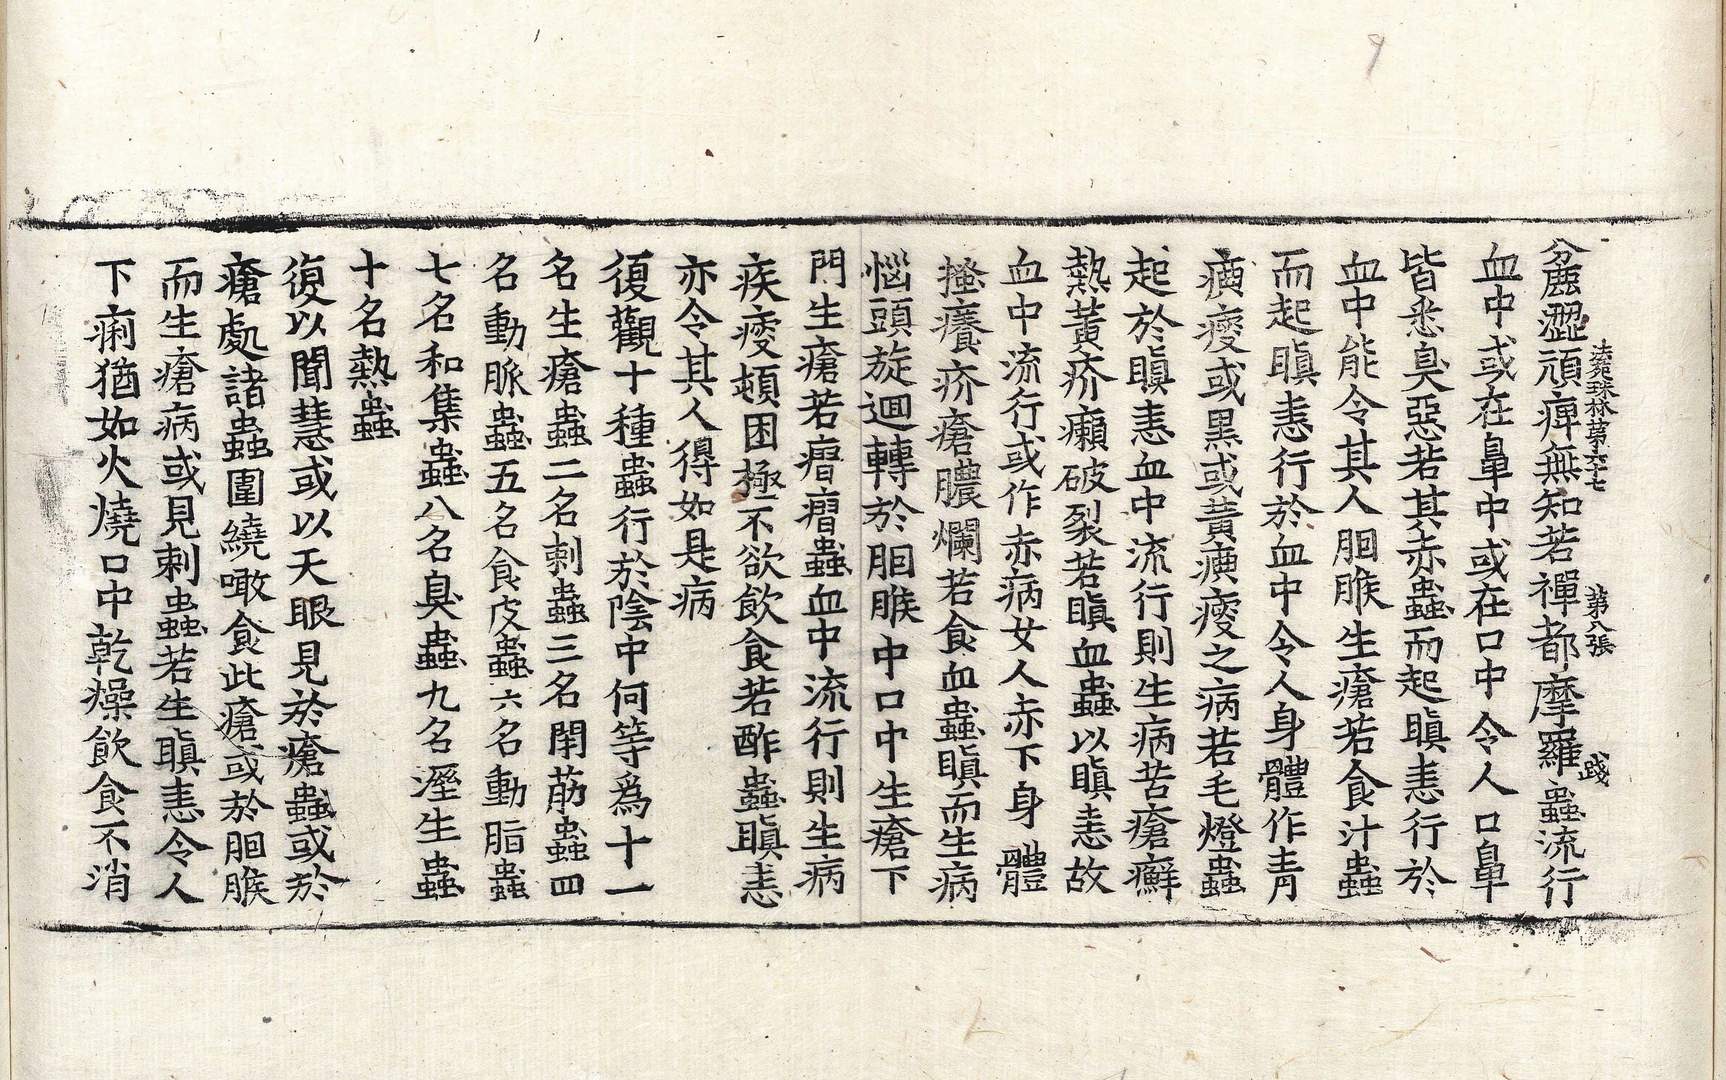 法苑珠林第六十七　第八張　踐
坌麁澀頑痺無知若禪都摩羅蟲流行
血中或在鼻中或在口中令人口鼻
皆悉臭惡若其赤蟲而起瞋恚行於
血中能令其人胭喉生瘡若食汁蟲
而起瞋恚行於血中令人身體作青
痶痠或黑或黃痶痠之病若毛燈蟲
起於瞋恚血中流行則生病苦瘡癬
熱黃疥癩破裂若瞋血蟲以瞋恚故
血中流行或作赤病女人赤下身體
搔癢疥瘡膿爛若食血蟲瞋而生病
惱頭旋迴轉於胭喉中口中生瘡下
門生瘡若蟲血中流行則生病
疾痠頓困極不欲飲食若酢蟲瞋恚
亦令其人得如是病
復觀十種蟲行於陰中何等爲十一
名生瘡蟲二名刺蟲三名閉筋蟲四
名動脈蟲五名食皮蟲六名動脂蟲
七名和集蟲八名臭蟲九名溼生蟲
十名熱蟲
復以聞慧或以天眼見於瘡蟲或於
瘡處諸蟲圍繞噉食此瘡或於胭喉
而生瘡病或見刺蟲若生瞋恚令人
下痢猶如火燒口中乾燥飲食不消